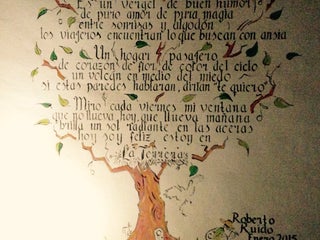 Es un vergel de buen humor
de puro amor de pura magia
entre sonrisas y algodón
los viajeros encuentran lo que buscan con ansia
Un hogar pasajero
de corazón de flor de color del cielo
un volcán en medio del miedo
si estas paredes hablaran, dirían te quiero
Miro cada viernes mi ventana
que no llueva hoy, que llueva mañana
brilla un sol radiante en las aceras
hoy soy feliz, estoy en
La
Roberto
Ruido
Enero 2015